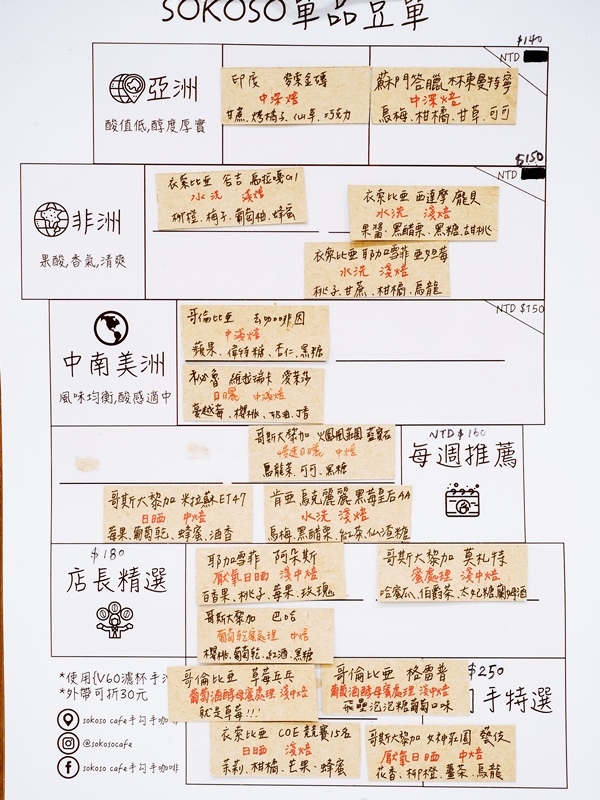 SOKOSO單品豆單
$140
NTD
亞洲
酸值低,醇度厚實
印度 麥索金磚
中深焙
甘蔗、烤橘子、仙草、巧克力
蘇門答臘 林東曼特寧
中深焙
烏梅、柑橘、甘草、可可
$150
NTD
非洲
果酸,香氣,清爽
衣索比亞 古吉 烏拉嘎G1
水洗 淺焙
柳橙、梅子、葡萄柚、蜂蜜
衣索比亞 西達摩
水洗 淺焙
果醬、黑醋栗、黑糖、胡桃
衣索比亞 耶加雪菲 亞
水洗 淺焙
桃子、甘蔗、柑橘、烏龍
NTD $150
中南美洲
風味均衡,酸感適中
哥倫比亞 去咖啡因
中淺焙
蘋果、偉特糖、杏仁、黑糖
祕魯 維拉瑞卡 愛茉莎
日曬 中淺焙
蔓越莓、櫻桃、奶油、丁香
NTD$160
每週推薦
哥斯大黎加 火鳳凰莊園 藍寶石
慢速日曬 中焙
烏龍茶、可可、黑糖
哥斯大黎加 米拉蘇ET47
日晒 中焙
莓果、葡萄乾、蜂蜜、酒香
肯亞 烏克麗麗 黑莓皇后AA
水洗 淺焙
烏梅、黑醋栗、紅茶、仙渣糖
$180
店長精選
耶加雪菲 阿朵斯
厭氧日晒 淺中焙
百香果、桃子、莓果、玫瑰
哥斯大黎加 莫札特
蜜處理 淺中焙
哈蜜瓜、伯爵茶、太妃糖、蘭姆酒
哥斯大黎加 巴哈
葡萄乾蜜處理 中焙
櫻桃、葡萄乾、紅酒、黑糖
$250
手特選
哥倫比亞 草莓乒乓
葡萄酒酵母蜜處理 淺中焙
就是草莓!!!
哥倫比亞 格雷普
葡萄酒酵母蜜處理 淺中焙
飛壘泡泡糖葡萄口味
衣索比亞 COE競賽15名
日晒 淺焙
茉莉、柑橘、芒果、蜂蜜
哥斯大黎加 女神莊園 藝伎
厭氧日晒 中焙
花香、柳橙、薑茶、烏龍
*使用{V60濾杯手沖
*外帶可折30元
sokoso cafe手勾手咖啡
@sokosocafe
sokoso cafe手勾手咖啡